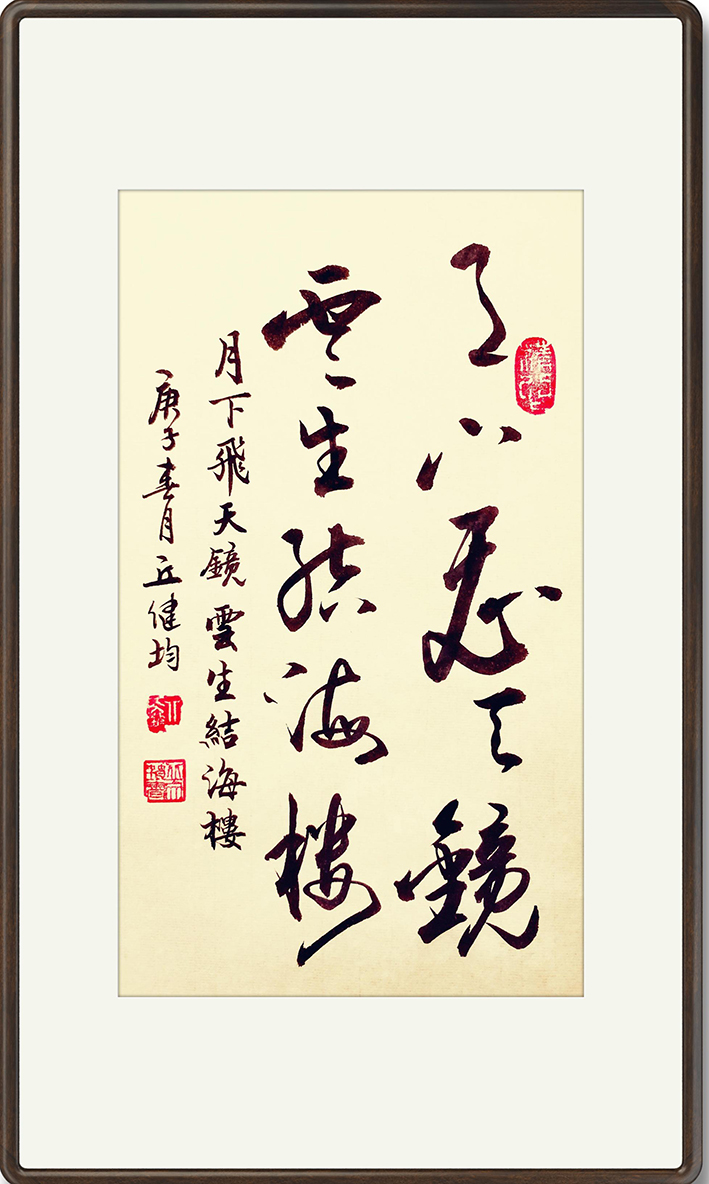 月下飛天鏡
雲生結海樓
月下飛天鏡雲生結海樓
庚子春月丘健均